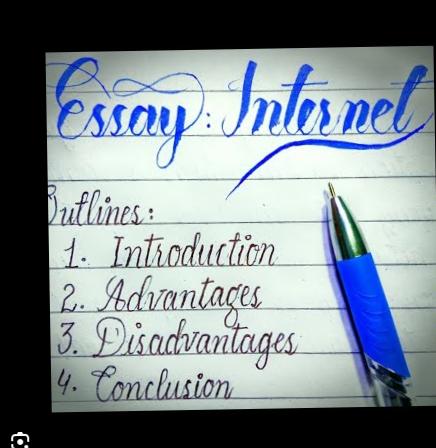 Essay: Internet
Outlines:
1. Introduction
2. Advantages
3. Disadvantages
4. Conclusion